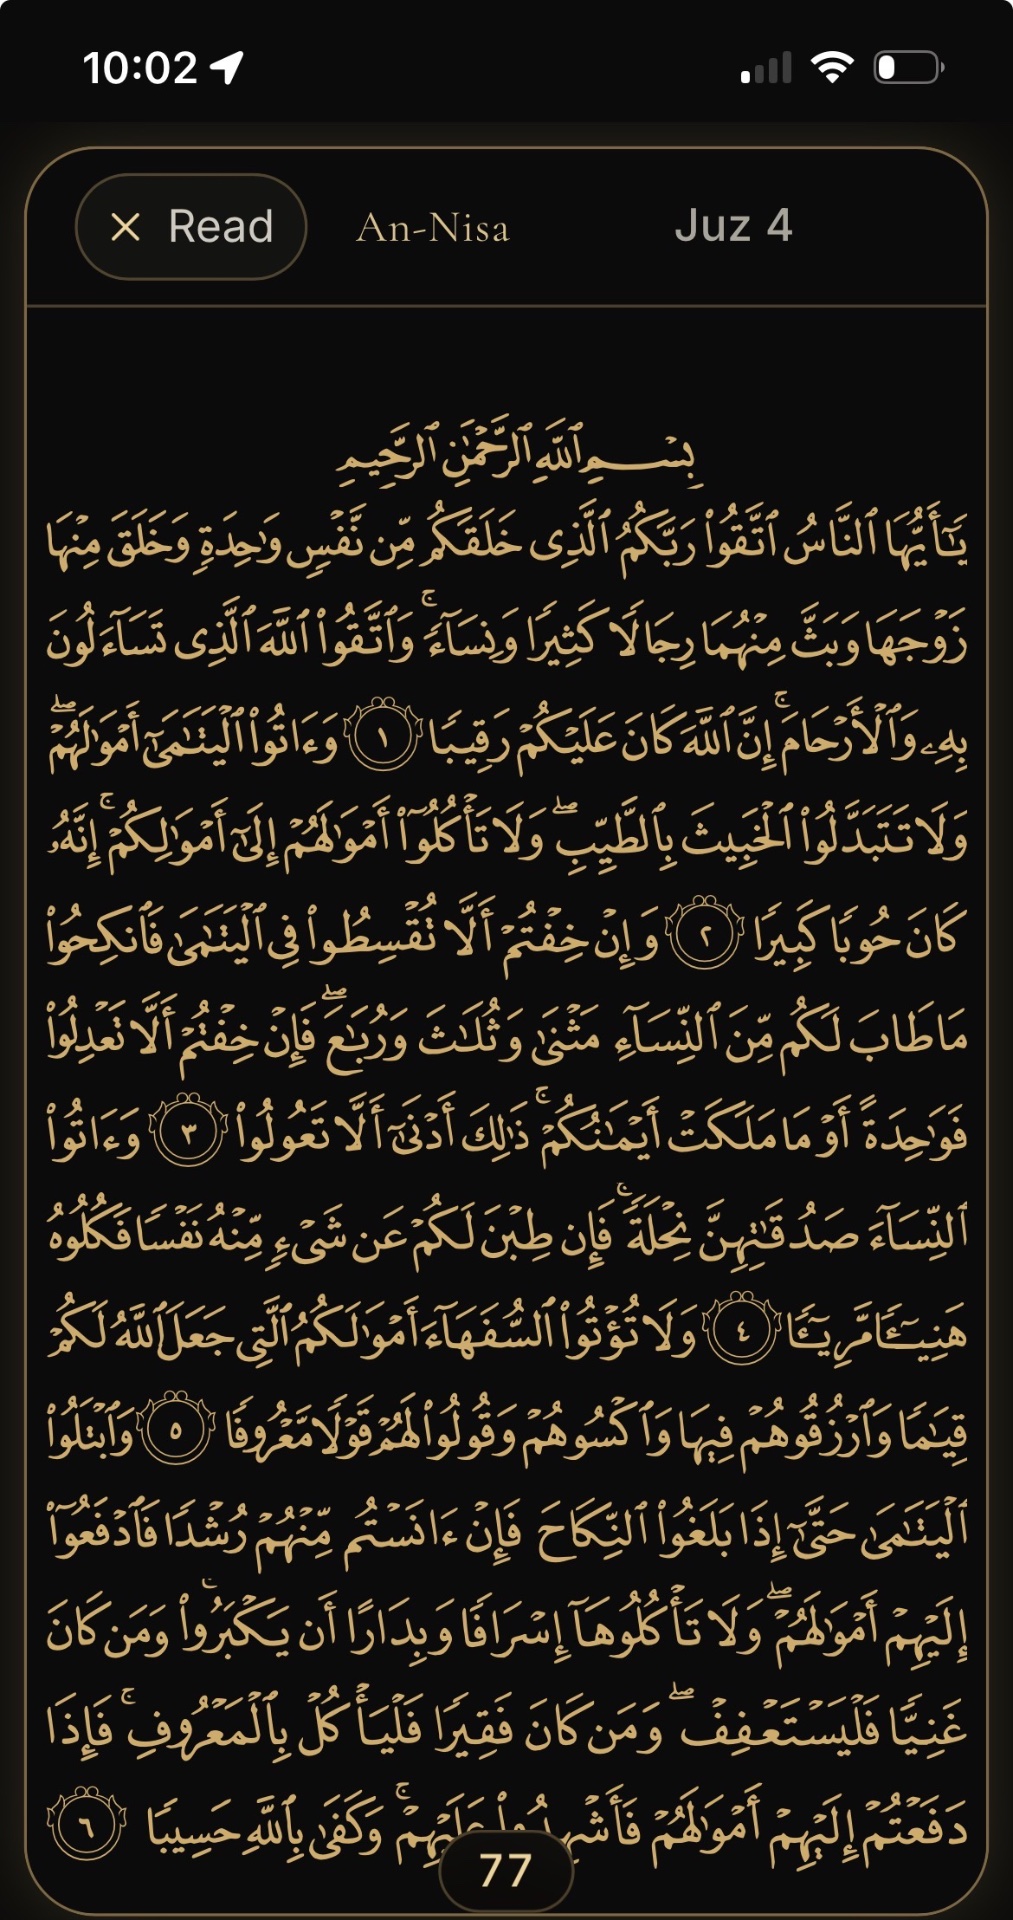 10:02
Read An-Nisa Juz 4
بِسْمِ ٱللَّهِ ٱلرَّحْمَٰنِ ٱلرَّحِيمِ
يَٰٓأَيُّهَا ٱلنَّاسُ ٱتَّقُوا۟ رَبَّكُمُ ٱلَّذِى خَلَقَكُم مِّن نَّفْسٍ وَٰحِدَةٍ وَخَلَقَ مِنْهَا
زَوْجَهَا وَبَثَّ مِنْهُمَا رِجَالًا كَثِيرًا وَنِسَآءً ۚ وَٱتَّقُوا۟ ٱللَّهَ ٱلَّذِى تَسَآءَلُونَ
بِهِۦ وَٱلْأَرْحَامَ ۚ إِنَّ ٱللَّهَ كَانَ عَلَيْكُمْ رَقِيبًا ١ وَءَاتُوا۟ ٱلْيَتَٰمَىٰٓ أَمْوَٰلَهُمْ ۖ
وَلَا تَتَبَدَّلُوا۟ ٱلْخَبِيثَ بِٱلطَّيِّبِ ۖ وَلَا تَأْكُلُوٓا۟ أَمْوَٰلَهُمْ إِلَىٰٓ أَمْوَٰلِكُمْ ۚ إِنَّهُۥ
كَانَ حُوبًا كَبِيرًا ٢ وَإِنْ خِفْتُمْ أَلَّا تُقْسِطُوا۟ فِى ٱلْيَتَٰمَىٰ فَٱنكِحُوا۟
مَا طَابَ لَكُم مِّنَ ٱلنِّسَآءِ مَثْنَىٰ وَثُلَٰثَ وَرُبَٰعَ ۖ فَإِنْ خِفْتُمْ أَلَّا تَعْدِلُوا۟
فَوَٰحِدَةً أَوْ مَا مَلَكَتْ أَيْمَٰنُكُمْ ۚ ذَٰلِكَ أَدْنَىٰٓ أَلَّا تَعُولُوا۟ ٣ وَءَاتُوا۟
ٱلنِّسَآءَ صَدُقَٰتِهِنَّ نِحْلَةً ۚ فَإِن طِبْنَ لَكُمْ عَن شَىْءٍ مِّنْهُ نَفْسًا فَكُلُوهُ
هَنِيٓـًٔا مَّرِيٓـًٔا ٤ وَلَا تُؤْتُوا۟ ٱلسُّفَهَآءَ أَمْوَٰلَكُمُ ٱلَّتِى جَعَلَ ٱللَّهُ لَكُمْ
قِيَٰمًا وَٱرْزُقُوهُمْ فِيهَا وَٱكْسُوهُمْ وَقُولُوا۟ لَهُمْ قَوْلًا مَّعْرُوفًا ٥ وَٱبْتَلُوا۟
ٱلْيَتَٰمَىٰ حَتَّىٰٓ إِذَا بَلَغُوا۟ ٱلنِّكَاحَ فَإِنْ ءَانَسْتُم مِّنْهُمْ رُشْدًا فَٱدْفَعُوٓا۟
إِلَيْهِمْ أَمْوَٰلَهُمْ ۖ وَلَا تَأْكُلُوهَآ إِسْرَافًا وَبِدَارًا أَن يَكْبَرُوا۟ ۚ وَمَن كَانَ
غَنِيًّا فَلْيَسْتَعْفِفْ ۖ وَمَن كَانَ فَقِيرًا فَلْيَأْكُلْ بِٱلْمَعْرُوفِ ۚ فَإِذَا
دَفَعْتُمْ إِلَيْهِمْ أَمْوَٰلَهُمْ فَأَشْهِدُوا۟ عَلَيْهِمْ ۚ وَكَفَىٰ بِٱللَّهِ حَسِيبًا ٦
77